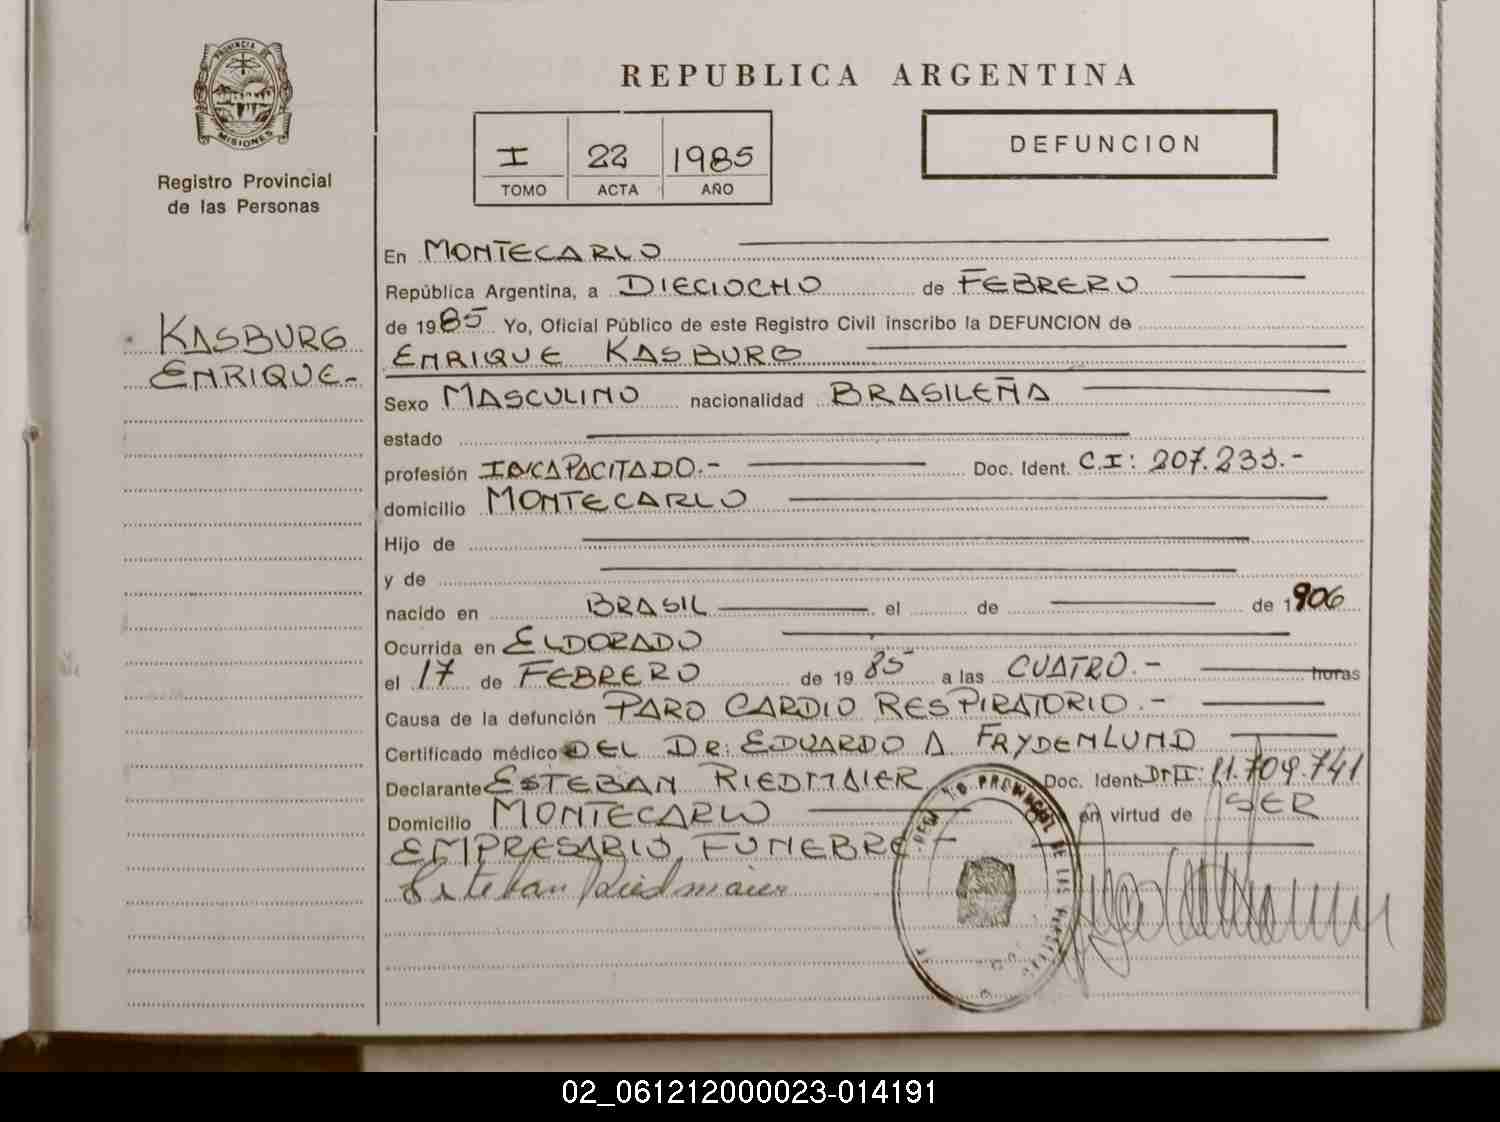 PROVINCIA DE
MISIONES
Registro Provincial
de las Personas
KASBURG
ENRIQUE.-
REPUBLICA ARGENTINA
I 22 1985
TOMO ACTA AÑO
DEFUNCION
En MONTECARLO
República Argentina, a DIECIOCHO de FEBRERO
de 1985 Yo, Oficial Público de este Registro Civil inscribo la DEFUNCION de
ENRIQUE KASBURG
Sexo MASCULINO nacionalidad BRASILEÑA
estado
profesión INCAPACITADO.- Doc. Ident. C.I: 207.233.-
domicilio MONTECARLO
Hijo de
y de
nacido en BRASIL el de de 1906
Ocurrida en ELDORADO
el 17 de FEBRERO de 1985 a las CUATRO.- horas
Causa de la defunción PARO CARDIO RESPIRATORIO.-
Certificado médico DEL DR: EDUARDO A FRYDENLUND
Declarante ESTEBAN RIEDMAIER Doc. Ident. 11.709.741
Domicilio MONTECARLO en virtud de SER
EMPRESARIO FUNEBRE
Esteban Riedmaier
02_061212000023-014191